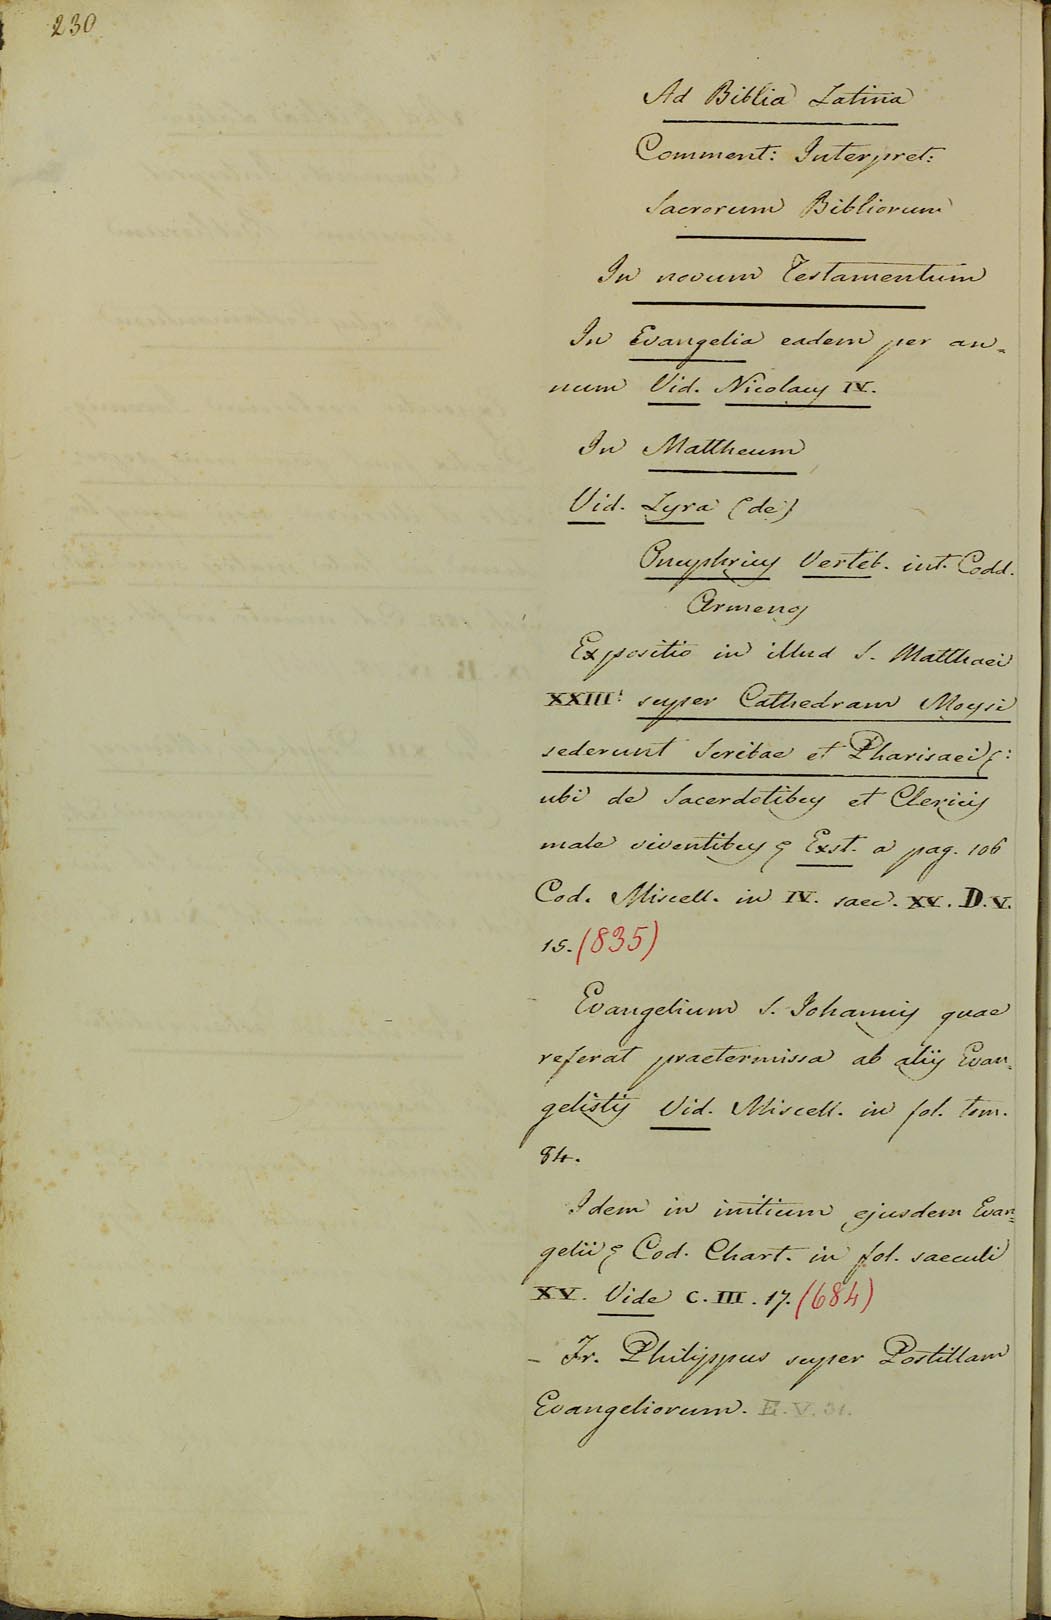 230
Ad Biblia Latina
Comment: Interpret:
Sacrorum Bibliorum
In novum Testamentum
In Evangelia eadem per an=
num Vid. Nicolaus IV.
In Mattheum
Vid. Lyra (de)
Onuphrius Verteb. int. Codd.
Armenos
Expositio in illud S. Matthaei
XXIII: super Cathedram Moysi
sederunt Scribae et Pharisaei &:
ubi de Sacerdotibus et Clericis
male viventibus & Exst. a pag. 106
Cod. Miscell. in IV. saec. XV. D.V.
15. (835)
Evangelium S. Johannis quae
referat praetermissa ab aliis Evan=
gelistis Vid. Miscell. in fol. tom.
84.
Idem in initium ejusdem Evan=
gelii & Cod. Chart. in fol. saeculi
XV. Vide C.III.17. (684)
– Fr. Philippus super Postillam
Evangeliorum. E.V.31.